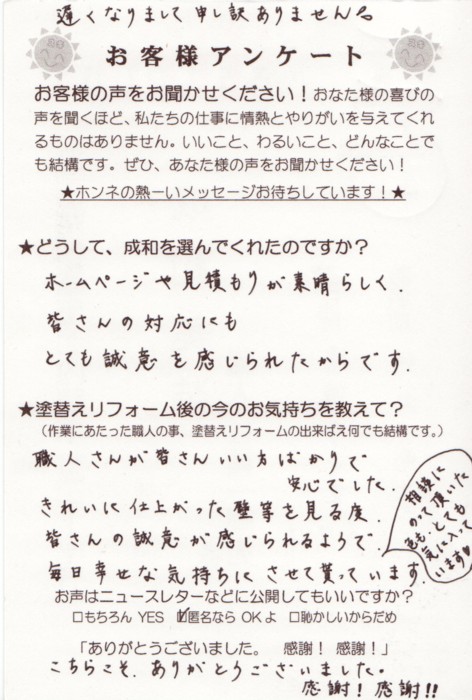 遅くなりまして申し訳ありません。
お客様アンケート
お客様の声をお聞かせください！おなた様の喜びの
声を聞くほど、私たちの仕事に情熱とやりがいを与えてくれ
るものはありません。いいこと、わるいこと、どんなことで
も結構です。ぜひ、あなた様の声をお聞かせください！
★ホンネの熱ーいメッセージお待ちしています！★
★どうして、成和を選んでくれたのですか？
ホームページや見積もりが素晴らしく.
皆さんの対応にも
とても誠意を感じられたからです.
★塗替えリフォーム後の今のお気持ちを教えて？
（作業にあたった職人の事、塗替えリフォームの出来ばえ何でも結構です。）
職人さんが皆さんいい方ばかりで
安心でした.
きれいに仕上がった壁等を見る度.
皆さんの誠意が感じられるようで.
毎日幸せな気持ちにさせて貰っています.
相談に
のって頂いた
色も、とても
気に入って
います!!
お声はニュースレターなどに公開してもいいですか？
□もちろん YES ☑匿名なら OK よ □恥かしいからだめ
「ありがとうございました。 感謝！ 感謝！」
こちらこそ、ありがとうございました。
感謝！ 感謝!!